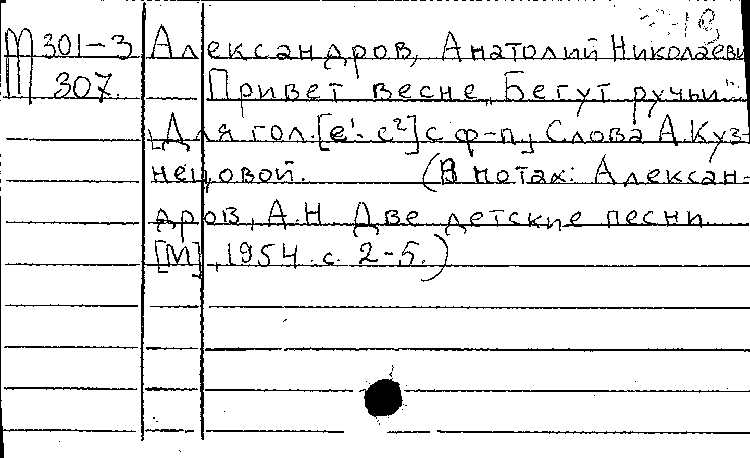 М 301-3 Александров, Анатолий Николаеви
307. Привет весне „Бегут ручьи"
[Для гол. [e¹-c²] с ф-п.] Слова А.Куз-
нецовой. (В нотах: Алексан-
дров, А.Н. Две детские песни
[М], 1954. с. 2-5.)